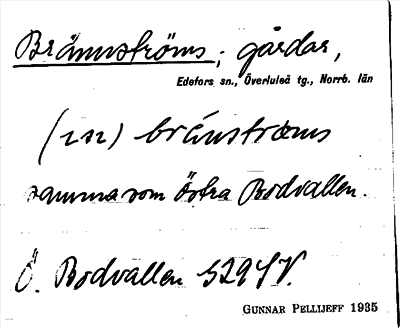 Brännströms; gårdar,
Edefors sn., Överluleå tg., Norrb. län
(in) bränströms
samma som Östra Bodvallen.
Ö. Bodvallen S29
GUNNAR PELLIJEFF 1935